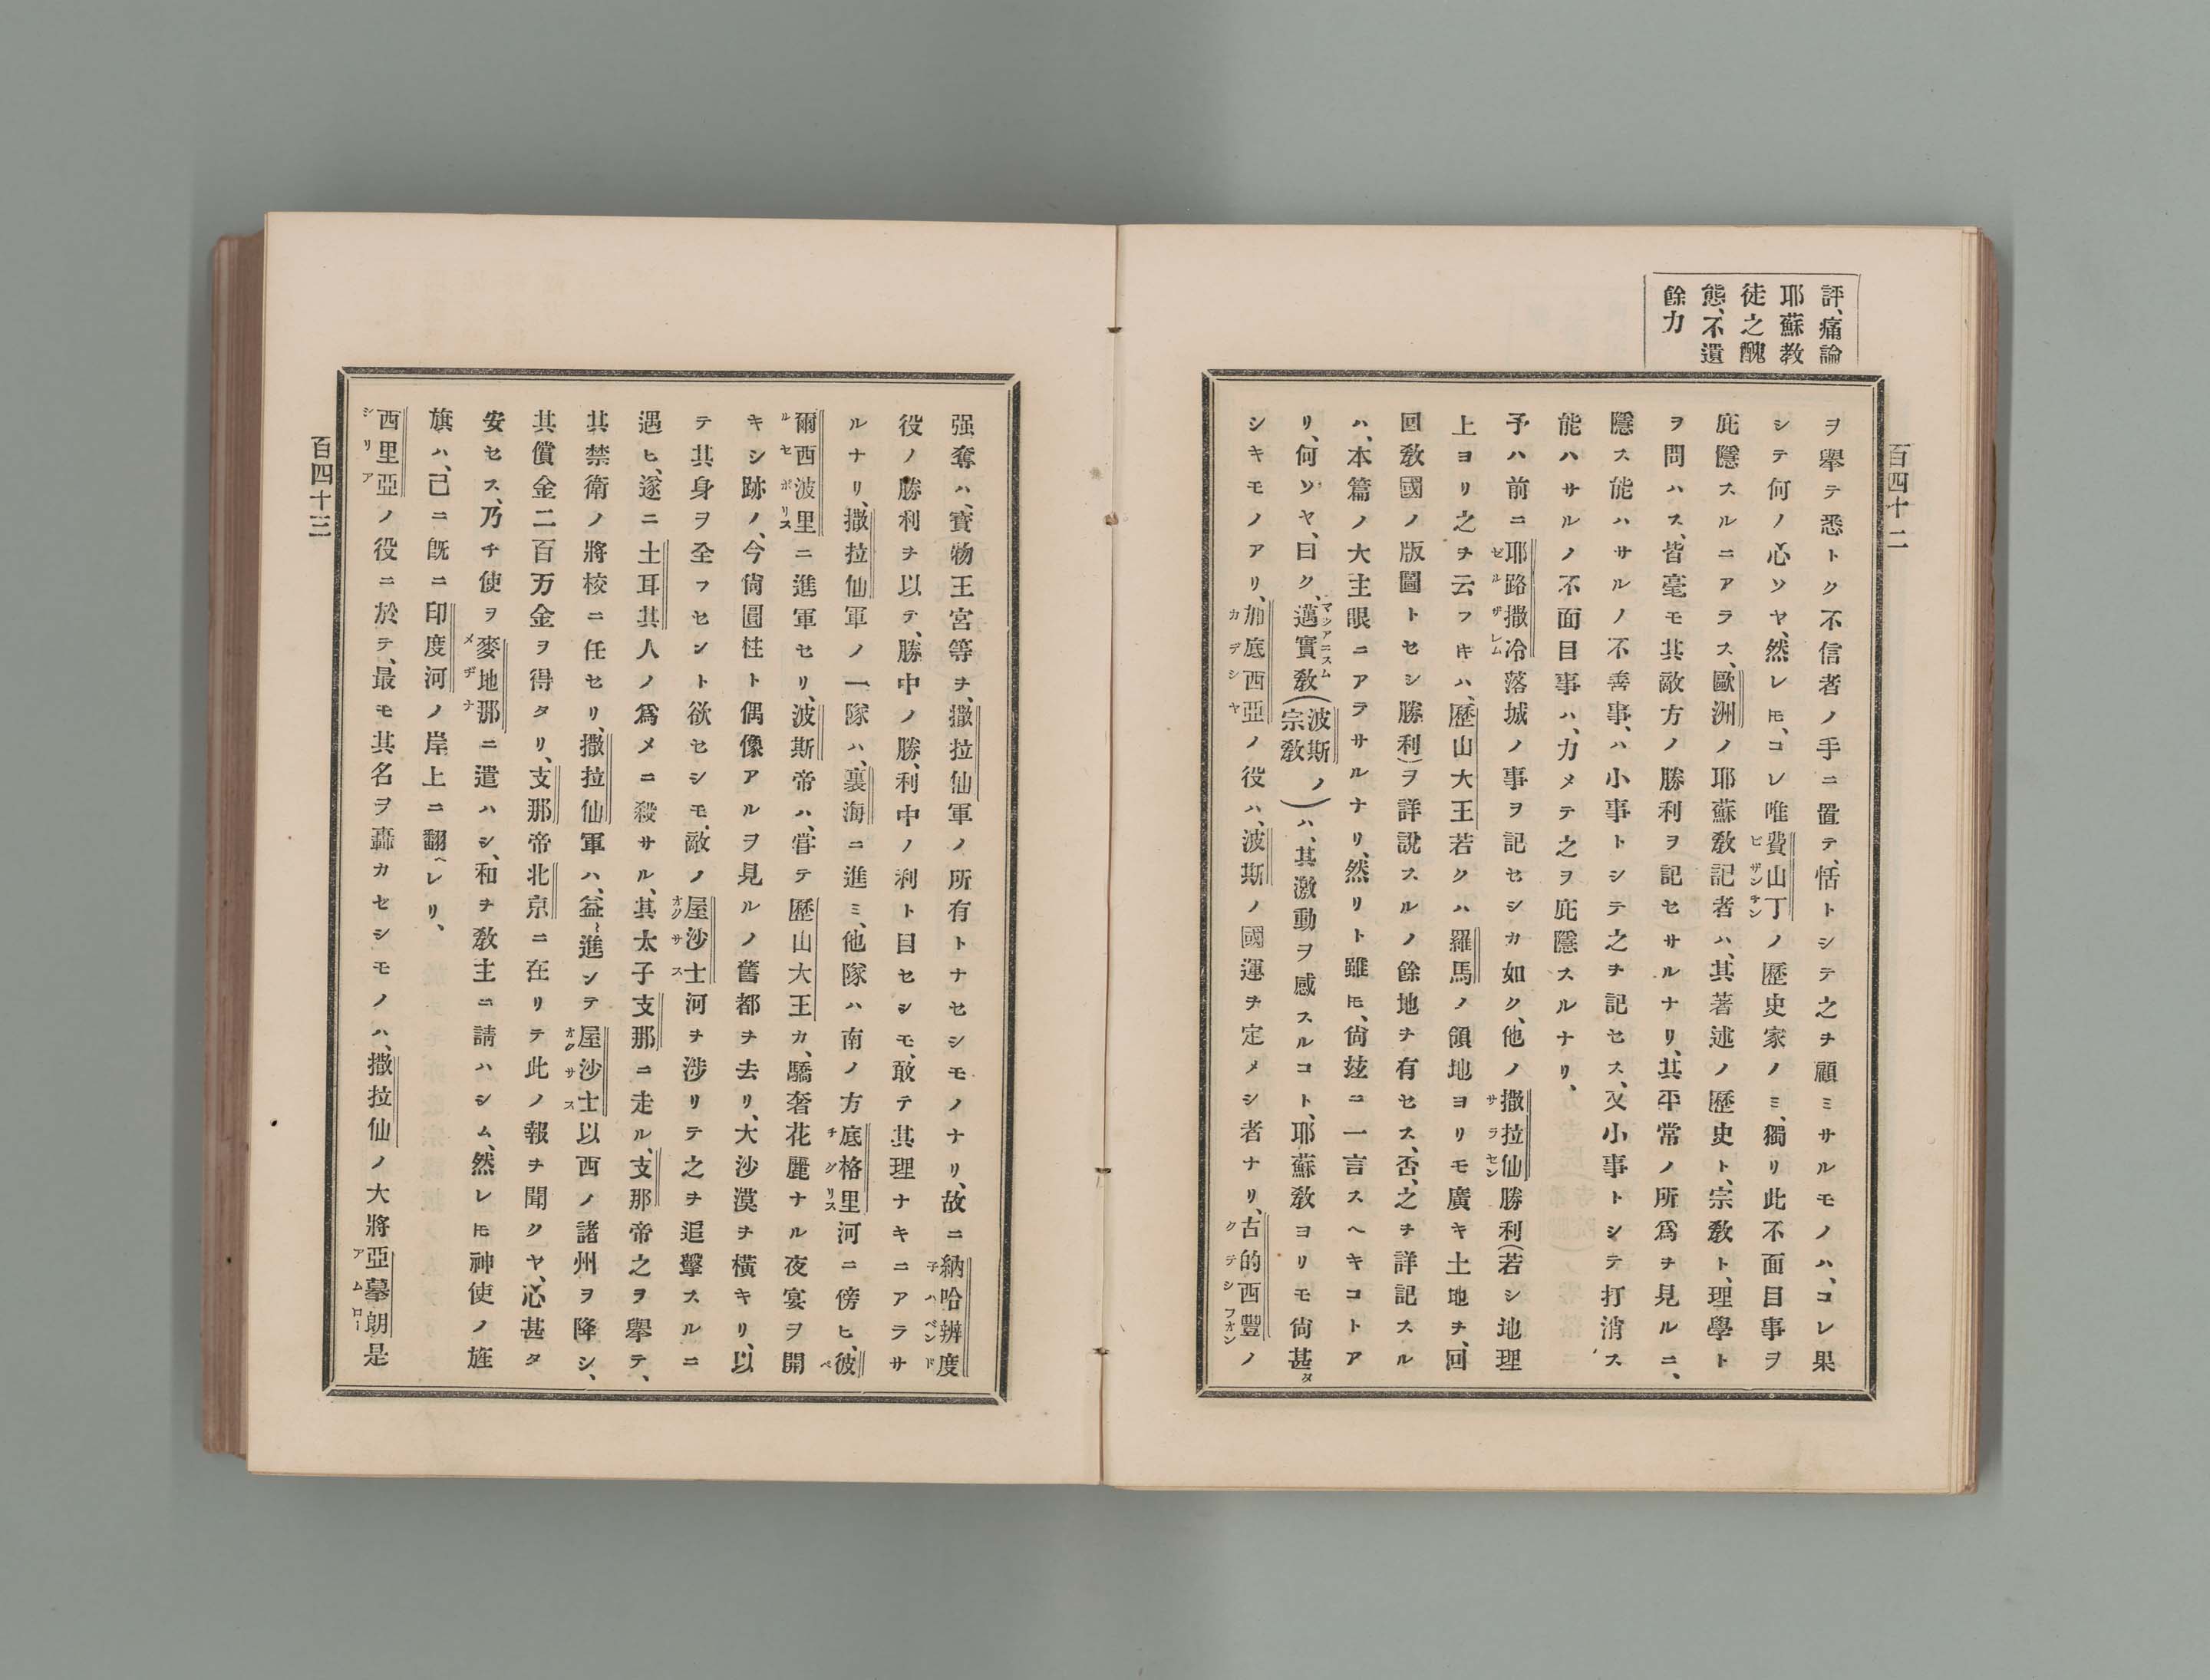 百四十二
評、痛論
耶蘇教
徒之醜
態、不遺
餘力
ヲ擧テ悉トク不信者ノ手ニ置テ、恬トシテ之ヲ顧ミサルモノハ、コレ果
シテ何ノ心ソヤ、然レ𪜈、コレ唯費山丁ノ歷史家ノミ、獨リ此不面目事ヲ
ビザンチン
庇隱スルニアラス、歐洲ノ耶蘇教記者ハ、其著述ノ歷史ト、宗教ト、理學ト
ヲ問ハス、皆毫モ其敵方ノ勝利ヲ記セサルナリ、其平常ノ所爲ヲ見ルニ、
隱ス能ハサルノ不善事、ハ小事トシテ之ヲ記セス、又小事トシテ打消ス
能ハサルノ不面目事ハ、力メテ之ヲ庇隱スルナリ、
予ハ前ニ耶路撒冷落城ノ事ヲ記セシカ如ク、他ノ撒拉仙勝利(若シ地理
ゼルザレム
サラセン
上ヨリ之ヲ云フ𪜈ハ、歷山大王若クハ羅馬ノ領地ヨリモ廣キ土地ヲ、回
回教國ノ版圖トセシ勝利)ヲ詳說スルノ餘地ヲ有セス、否、之ヲ詳記スル
ハ、本篇ノ大主眼ニアラサルナリ、然リト雖𪜈、尙玆ニ一言スヘキコトア
リ、何ソヤ、曰ク、邁實教(波斯ノ宗教)ハ、其激動ヲ感スルコト、耶蘇教ヨリモ尙甚タ
マジアニスム
シキモノアリ、加底西亞ノ役ハ、波斯ノ國運ヲ定メシ者ナリ、古的西豐ノ
カデシヤ
クテシフォン
强奪ハ、寶物王宮等ヲ、撒拉仙軍ノ所有トナセシモノナリ、故ニ納哈辨度
子ハベンド
役ノ勝利ヲ以テ、勝中ノ勝、利中ノ利ト目セシモ、敢テ其理ナキニアラサ
ルナリ、撒拉仙軍ノ一隊ハ、裏海ニ進ミ、他隊ハ南ノ方底格里河ニ傍ヒ、彼
チグリス
ペ
爾西波里ニ進軍セリ、波斯帝ハ、甞テ歷山大王カ、驕奢花麗ナル夜宴ヲ開
ルセポリス
キシ跡ノ、今尙圓柱ト偶像アルヲ見ルノ舊都ヲ去リ、大沙漠ヲ橫キリ、以
テ其身ヲ全フセント欲セシモ、敵ノ屋沙士河ヲ涉リテ之ヲ追擊スルニ
オクサス
遇ヒ、遂ニ土耳其人ノ爲メニ殺サル、其太子支那ニ走ル、支那帝之ヲ擧テ、
其禁衛ノ將校ニ任セリ、撒拉仙軍ハ、益〻進ンテ屋沙士以西ノ諸州ヲ降シ、
オクサス
其償金二百万金ヲ得タリ、支那帝北京ニ在リテ此ノ報ヲ聞クヤ、心甚タ
安セス、乃チ使ヲ麥地那ニ遣ハシ、和ヲ教主ニ請ハシム、然レ𪜈神使ノ旌
メヂナ
旗ハ、已ニ既ニ印度河ノ岸上ニ翻ヘレリ、
西里亞ノ役ニ於テ、最モ其名ヲ轟カセシモノハ、撒拉仙ノ大將亞摹朗是
シリア
アムロー
百四十三